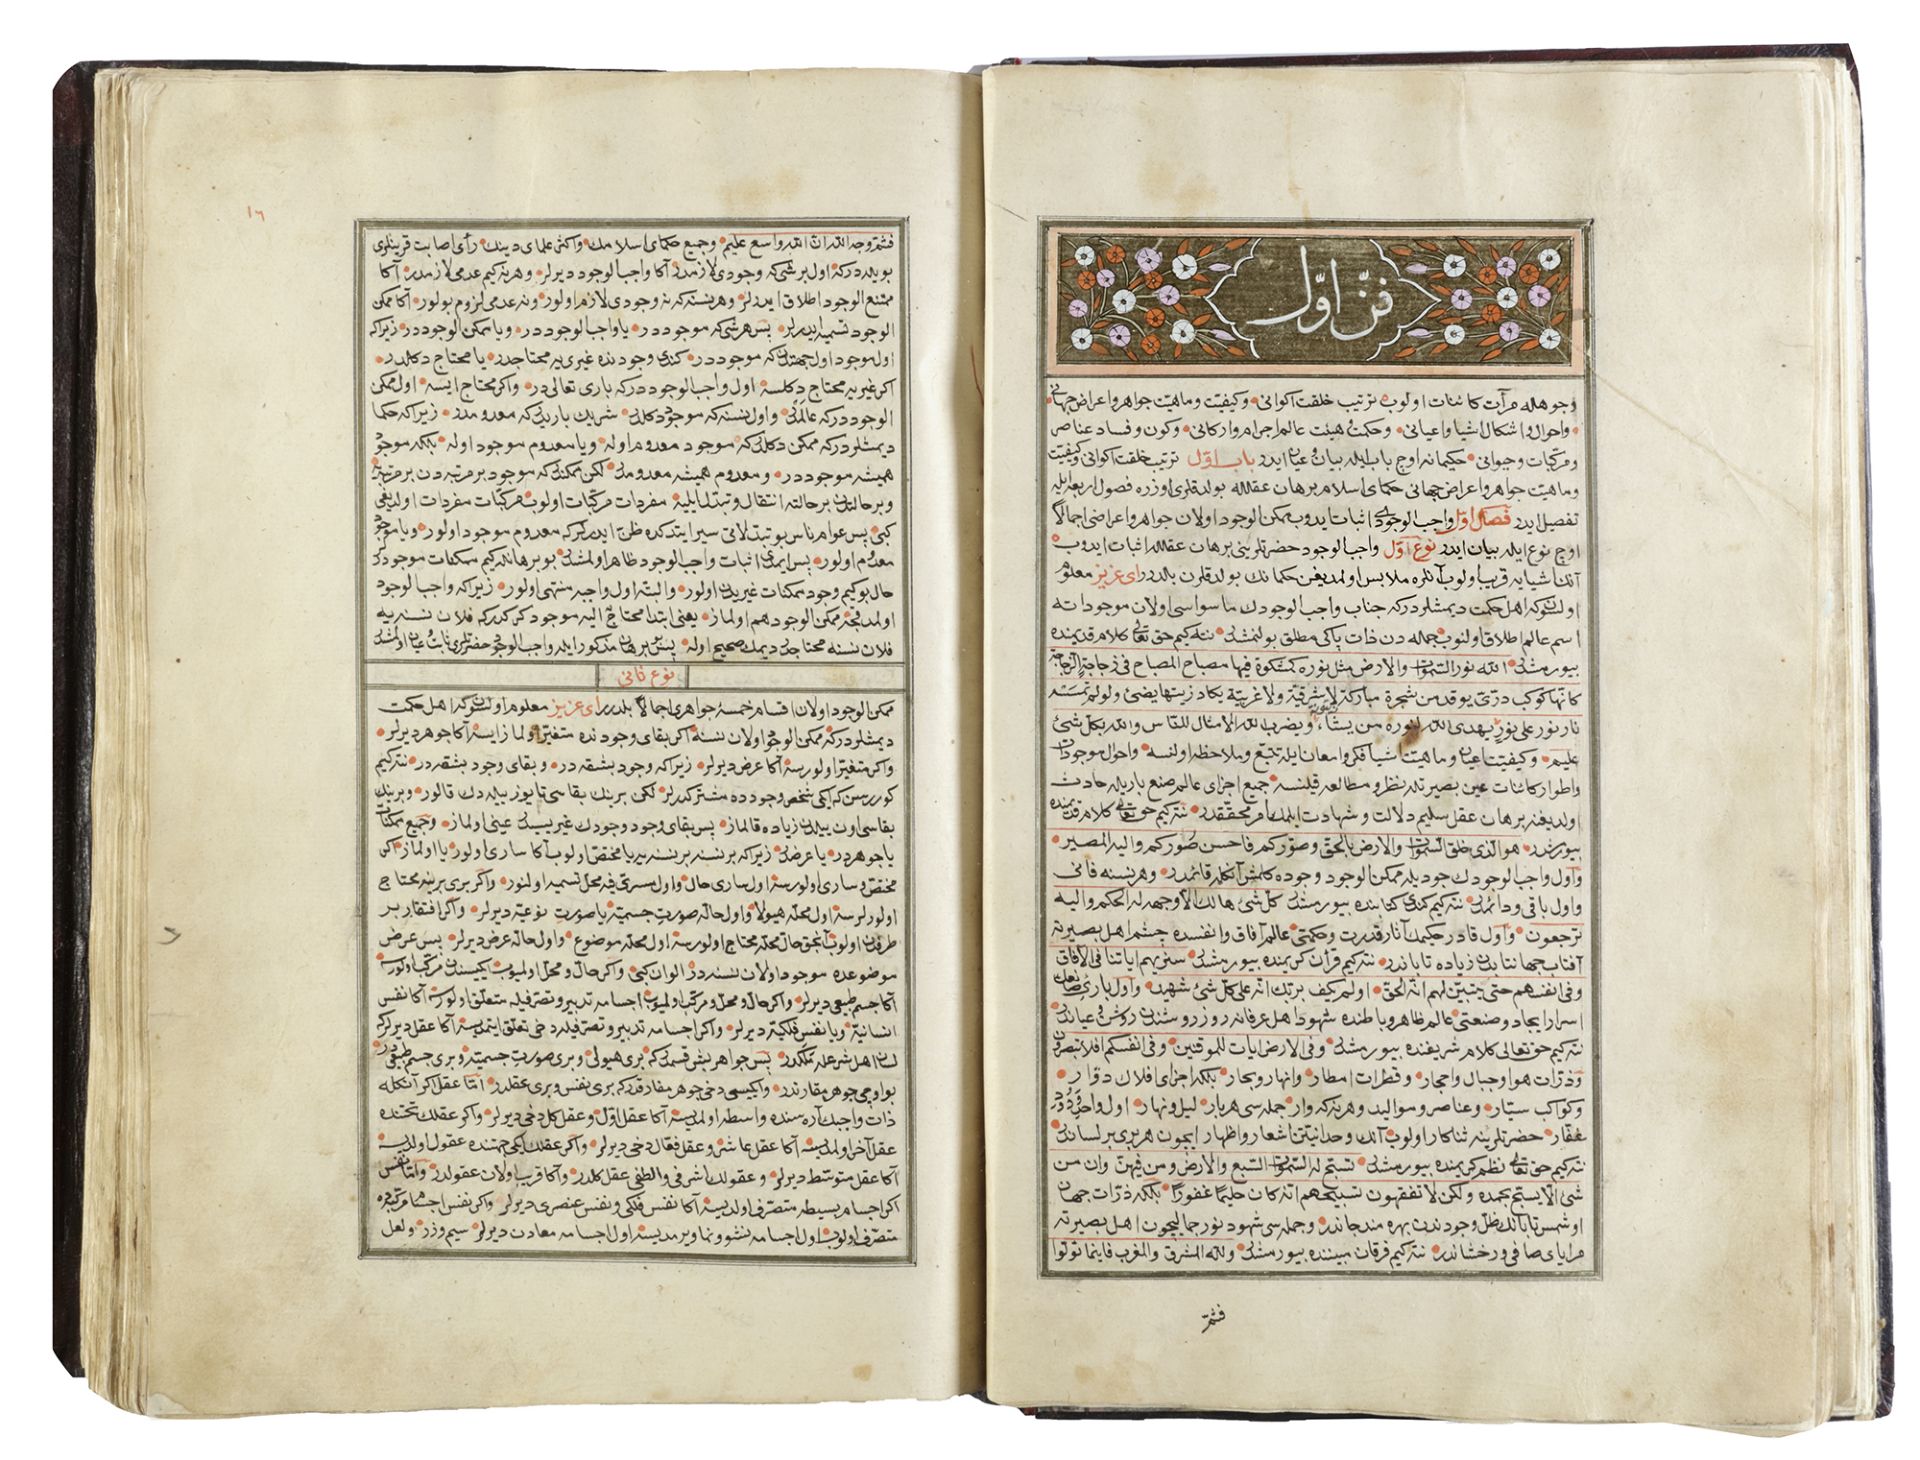 فنّ اوّل
وجوهله مرآت كائنات اولوب ترتيب خلقت اكوانى وكيفيّت وماهيّت جواهر واعراض جهانى
واحوال واشكال اشيا واعيانى وحكمت هيئت عالم اجرام واركانى وكون وفساد عناصر
ومركبات وحيوانى حكيمانه اوچ باب ايله بيان وعيان ايدر باب اوّل ترتيب خلقت اكوانى وكيفيّت
وماهيّت جواهر واعراض جهانى حكماى اسلام برهان عقلله بولدقلرى اوزره فصول اربعه ايله
تفصيل ايدر فصل اوّل واجب الوجودى اثبات ايدوب ممكن الوجود اولان جواهر واعراضى اجمالاً
اوچ نوع ايله بيان ايدر نوع اوّل واجب الوجود حضرتلرينى برهان عقلله اثبات ايدوب
آنك اشيايه قريب اولوب آنلره ملابس اولمديغن حكمانك بولدقلرن بلدرر اى عزيز معلوم
اولسونكه اهل حكمت ديمشلردركه جناب واجب الوجودك ماسواسى اولان موجوداته
اسم عالم اطلاق اولنوب جمله دن ذات پاكى مطلق بولنمشدر نته كيم حق تعالى كلام قديمنده
بيورمشدر الله نور السموات والارض مثل نوره كمشكوة فيها مصباح المصباح فى زجاجة الزجاجة
كانها كوكب درّى يوقد من شجرة مباركة لا شرقيّة ولا غربيّة يكاد زيتها يضئ ولو لم تمسسه
نار نور على نور يهدى الله لنوره من يشاء ويضرب الله الامثال للناس والله بكل شئ
عليم وكيفيّت اعيان وماهيّت اشيا فكر وامعان ايله تتبع وملاحظه اولنسه واحوال موجودات
واطوار كائنات عين بصيرتله نظر ومطالعه قيلنسه جميع اجزاى عالم صنع باريله حادث
اولديغنه برهان عقل سليم دلالت وشهادت ايلمك امر محققدر نته كيم حق تعالى كلام قديمنده
بيورمشدر هو الذى خلق السموات والارض بالحق وصوّركم فاحسن صوركم واليه المصير
واول واجب الوجودك جوديله ممكن الوجود وجوده كلمش آنكله قائمدر وهر نسنه فانى
واول باقى ودائمدر نته كيم كندى كتابنده بيورمشدر كل شئ هالك الّا وجهه له الحكم واليه
ترجعون واول قادر حكيمك آثار قدرت وحكمتى عالم آفاق وانفسده چشم اهل بصيرته
آفتاب جهانتابدن زياده تاباندر نته كيم قرآن كريمنده بيورمشدر سنريهم اياتنا فى الآفاق
وفى انفسهم حتى يتبيّن لهم انّه الحق اولم يكف بربك انّه على كل شئ شهيد واول بارئ صانعك
اسرار ايجاد وصنعتى عالم ظاهر وباطنده شهود اهل عرفانه روز روشندن روشن وعياندر
نته كيم حق تعالى كلام شريفنده بيورمشدر وفى الارض ايات للموقنين وفى انفسكم افلا تبصرون
وذرّات هوا وجبال واحجار وقطرات امطار وانهار وبحار بلكه اجزاى افلاك دوّار
وكواكب سيّار وعناصر ومواليد وهر نه كه وار جمله سى هر بار ليل ونهار اول واحد ودود
غفّار حضرتلرينه ثناكار اولوب آنك وحدانيّتن اشعار واظهار ايچون هر برى بر لساندر
نته كيم حق تعالى نظم كريمنده بيورمشدر تسبّح له السموات السبع والارض ومن فيهنّ وان من
شئ الّا يسبّح بحمده ولكن لا تفقهون تسبيحهم انّه كان حليماً غفوراً بلكه ذرّات جهان
او شمس تابانك ظلّ وجودندن بهره مند جاندر وجمله سى شهود نور جمال ايچون اهل بصيرته
مراياى صافى ورخشاندر نته كيم فرقان مبيننده بيورمشدر ولله المشرق والمغرب فاينما تولوا
فثمّ
١٦
فثمّ وجه الله ان الله واسع عليم وجميع حكماى اسلامك واكثر علماى دينك رأى اصابت قرينلرى
بويله دركه اول بر شى كه وجودى لازمدر آكا واجب الوجود ديرلر وهر نه كيم عدمى لازمدر آكا
ممتنع الوجود اطلاق ايدرلر وهر نسنه كه نه وجودى لازم اولور ونه عدمى لزوم بولور آكا ممكن
الوجود تسميه ايدرلر پس هر شى كه موجوددر يا واجب الوجوددر ويا ممكن الوجوددر زيراكه
اول موجود اول جهتدن كه موجوددر كندى وجودنده غيرى يه محتاجدر يا محتاج دكلدر
اكر غيريه محتاج دكلسه اول واجب الوجوددركه بارى تعالى در واكر محتاج ايسه اول ممكن
الوجوددركه عالمدر واول نسنه كه موجود دكلدر شريك باريدركه معدومدر زيراكه حكما
ديمشلردركه ممكن دكلدركه موجود معدوم اوله ويا معدوم موجود اوله بلكه موجود
هميشه موجوددر ومعدوم هميشه معدومدر لكن ممكندركه موجود بر مرتبه دن بر مرتبه يه
وبر حالتدن بر حالته انتقال وتبدّل ايليه مفردات مركّبات اولوب مركّبات مفردات اولديغى
كبى پس عوام ناس بو تبدّلاتى سير ايتدكده ظنّ ايدرلركه معدوم موجود اولور ويا موجود
معدوم اولور پس ايمدى اثبات واجب الوجود ظاهر اولمشدر بو برهانله كيم ممكنات موجوددر
حال بوكيم وجود ممكنات غيريدن اولور والبته اول واجبه منتهى اولور زيراكه واجب الوجود
اولمدقچه ممكن الوجود هم اولماز يعنى ابتدا محتاج اليه موجود كركدركه فلان نسنه يه
فلان نسنه محتاجدر ديمك صحيح اوله پس برهان مذكور ايله واجب الوجود حضرتلرى ثابت وعيان اولمشدر
نوع ثانى
ممكن الوجود اولان اقسام خمسۀ جواهرى اجمالاً بلدرر اى عزيز معلوم اولسونكه اهل حكمت
ديمشلردركه ممكن الوجود اولان نسنه اكر بقاى وجودنده متغيّر اولماز ايسه آكا جوهر ديرلر
واكر متغيّر اولورسه آكا عرض ديرلر زيراكه وجود بشقه در وبقاى وجود بشقه در نته كيم
كوررسن كه ايكى شخص وجودده مشتركدرلر لكن برينك بقاسى تا يوز ييله دك قالور وبرينك
بقاسى اون ييلدن زياده قالماز پس بقاى وجود وجودك غيريدر عينى اولماز وجميع ممكنات
يا جوهردر يا عرضدر زيراكه بر نسنه بر نسنه يه يا مختصّ اولوب آكا سارى اولور يا اولماز اكر
مختصّ وسارى اولورسه اول سارى حالّ واول مسرىّ فيه محل تسميه اولنور واكر برى برينه محتاج
اولورلرسه اول محلّه هيولا واول حالّه صورت جسميّه يا صورت نوعيّه ديرلر واكر افتقار بر
طرفدن اولوب آنجق حالّ محلّه محتاج اولورسه اول محلّه موضوع واول حالّه عرض ديرلر پس عرض
موضوعده موجود اولان نسنه در الوان كبى واكر حالّ ومحلّ اولميوب ايكيسندن مركّب اولورسه
آكا جسم طبيعى ديرلر واكر حالّ ومحلّ ومركّب اولميوب اجسامه تدبير وتصرّفيله متعلّق اولورسه آكا نفس
انسانيّه ويا نفس فلكيّه ديرلر واكر اجسامه تدبير وتصرّفيله دخى تعلّق ايتمديسه آكا عقل ديرلركه
لسان اهل شرعله ملكدر پس جواهر بش قسمدركه برى هيولى وبرى صورت جسميّه وبرى جسم طبيعى در
بو اوچى جوهر مقارندر وايكيسى دخى جوهر مفارقدركه برى نفس وبرى عقلدر امّا عقل اكر آنكله
ذات واجبك آره سنده واسطه اولمديسه آكا عقل اوّل وعقل كل دخى ديرلر واكر عقلك تحتنده
عقل آخر اولمديسه آكا عقل عاشر وعقل فعّال دخى ديرلر واكر عقلك ايكى جهتنده عقول اولديسه
آكا عقل متوسّط ديرلر وعقولك اشرفى والطفى عقل كلدر وآكا قريب اولان عقولدر وامّا نفس
اكر اجسام بسيطه يه متصرّف اولديسه آكا نفس فلكى ونفس عنصرى ديرلر واكر نفس اجسام مركّبه يه
متصرّف اولوب اول اجسامه نشو ونما ويرمديسه اول اجسامه معادن ديرلر سيم وزر ولعل